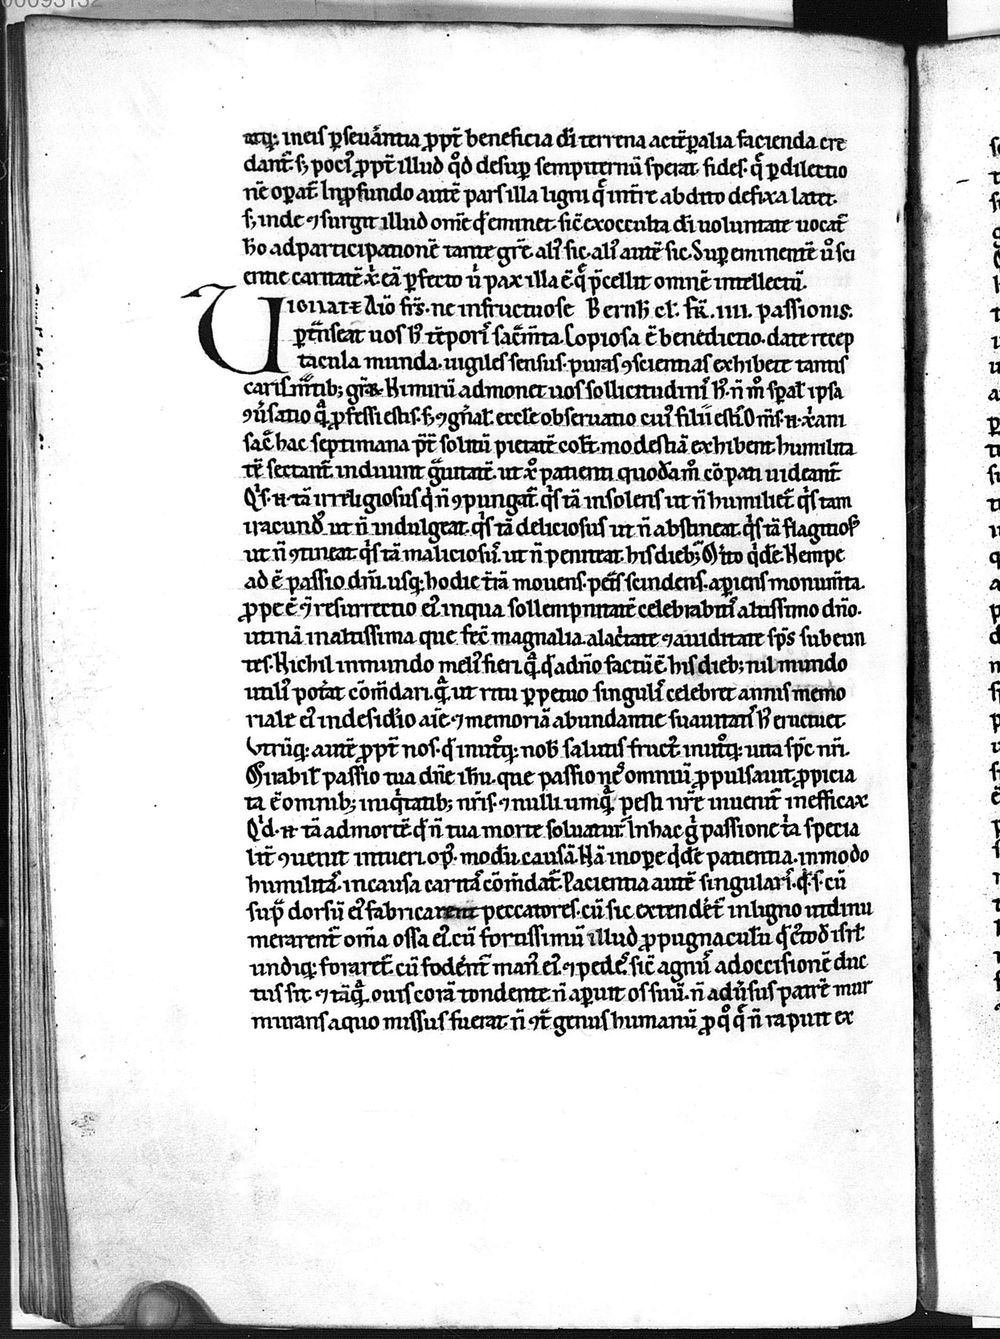 atq; in eis ꝑseuãntia ꝓpt̃ beneficia dĩ terrena ac tẽꝑalia facienda cre
dant̃. s; poci᷒ ꝓpt̃ illud qd̓ desuꝑ sempiternũ sperat fides. q̃ ꝑ dilectio
nẽ oꝑat̃. In ꝓfundo autẽ pars illa ligni q̃ in tr̃e abdito defixa latet.
s; inde ⁊ surgit illud om̃e qd̓ eminet. sic̃ ex occulta dĩ uoluntate uocat̃
hõ ad participationẽ tante gr̃e ali᷒ sic. ali᷒ autẽ sic. Suꝑeminentẽ u̓o sci
entie caritatẽ x̃. eã ꝑfecto u̓ pax illa ẽ. q̃ p̃cellit omnẽ intellectũ.
Uigilate aĩo fr̃s. ne infructuose Bernh̃ cl̃. fr̃. iiii. passionis:
ꝑt̃nseat uos h᷒ tẽpori᷒ sac̃m̃ta. Copiosa ẽ benedictio. date recep
tacula munda. uigiles sensus. puras ꝯsciencias exhibete tantis
carism̃atib; gr̃as. Nimirũ admonet uos sollicitudini᷒ h᷒. ñ m̊ sp̃al᷒ ipsa
ꝯũsatio q̃ ꝓfessi estis. s; ⁊ gñal᷒ eccl̃e obseruatio cui᷒ filii estis. Om̃s. n. xp̃iani
sac̃ hac septimana p̃t solitũ pietatẽ colt̃. modestiã exhibent. humilita
tẽ sectant̃. induunt g̃uitatẽ. ut xp̃o patienti quodãm̊ cõpati uideant̃.
Qⁱs. n. tã irreligiosus qⁱ ñ ꝯpungat̃. qⁱs tã insolens ut ñ humiliet̃. qⁱs tam
iracund᷒ ut ñ indulgeat. qⁱs tã deliciosus ut ñ abstineat. qⁱs tã flagitios᷒
ut ñ ꝯtineat. qⁱs tã malicios᷒. ut ñ peniteat. his dieb;. M̃ito qⁱdẽ. Nempe
adẽ passio dñi. usq; hodie t̃rã mouens. pet̃s scindens. aꝑiens monum̃ta.
ꝓpe ẽ ⁊ resurrectio ei᷒. in qua sollempnitatẽ celebrabitis altissimo dño.
utinã in altissima que fec̃ magnalia. alac̃tate ⁊ auiditate sp̃s subeun
tes. Nichil in mundo meli᷒ fieri. q̃. qd̓ a dño factũ ẽ his dieb;. nil mundo
utili᷒ pot̃at cõm̃dari. q̃. ut ritu ꝑpetuo singulis celebret annis memo
riale ei᷒. in desid̓io aĩe. ⁊ memoriã abundantie suauitatis h᷒ eructuet
Utrũq; autẽ ꝓpt̃ nos. qⁱ in utⁱq; nob̃ salutis fruct᷒. in utⁱq; uita sp̃c nr̃i.
Mirabil᷒ passio tua dñe ih̃u. que passiones omniũ ꝓpulsauit. ꝓpicia
ta ẽ omnib; iniqⁱtatib; nr̃is. ⁊ nulli umq̃. pesti nr̃e inuenit̃ inefficax
Qⁱd. n. tã ad mortẽ. qd̓ ñ tua morte soluatur̃. In hac g̊ passione t̃a specia
lit̃ ꝯuenit intueri. op᷒. modũ. causã. Nã in oꝑe qⁱdẽ patientia. in modo
humilitas. in causa caritas cõm̃dat̃. Pacientia autẽ singularis. qⁱ. s. cũ
sup̃ dorsũ ei᷒ fabricarent peccatores. cũ sic extendet̃ in ligno ut dinu
merarent̃ om̃a ossa ei᷒. cũ fortissimũ illud ꝓpugnaculũ qd̓ c̃stod̓ isrl̃
undiq; foraret̃. cũ foderent̃ man᷒ ei᷒. ⁊ pedes. sic̃ agn᷒ ad occisionẽ duc
tus sit. ⁊ tãq̃. ouis corã tondente ñ aꝑuit os suũ. ñ adũsus patrẽ mur
murans a quo missus fuerat. ñ ꝯt̃ genus humanũ ꝓ q̊ q̃ ñ rapuit ex